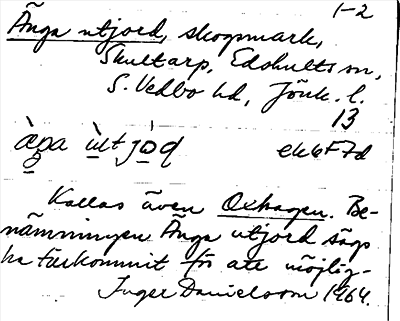 1-2
Änga utjord, skogsmark,
Skultarp, Edshults sn,
S. Vedbo hd, Jönk. l.
13
ek6F7d
Kallas även Oxhagen. Be-
nämningen Änga utjord sägs
ha tillkommit för att möjlig-
Inger Danielsson 1964.